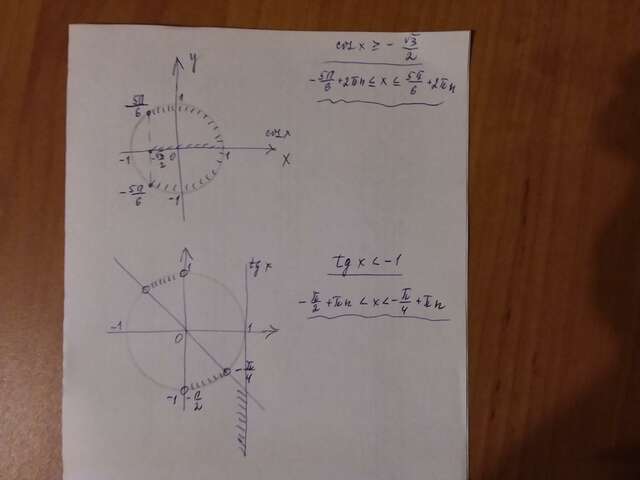 cos x ≥ - √3/2
-5π/6 + 2πn ≤ x ≤ 5π/6 + 2πn
y
5π/6
1
cos x
-1
-√3/2
0
1
x
-5π/6
-1
tg x < -1
-π/2 + πn < x < -π/4 + πn
1
tg x
-1
0
1
-π/4
-1
-π/2